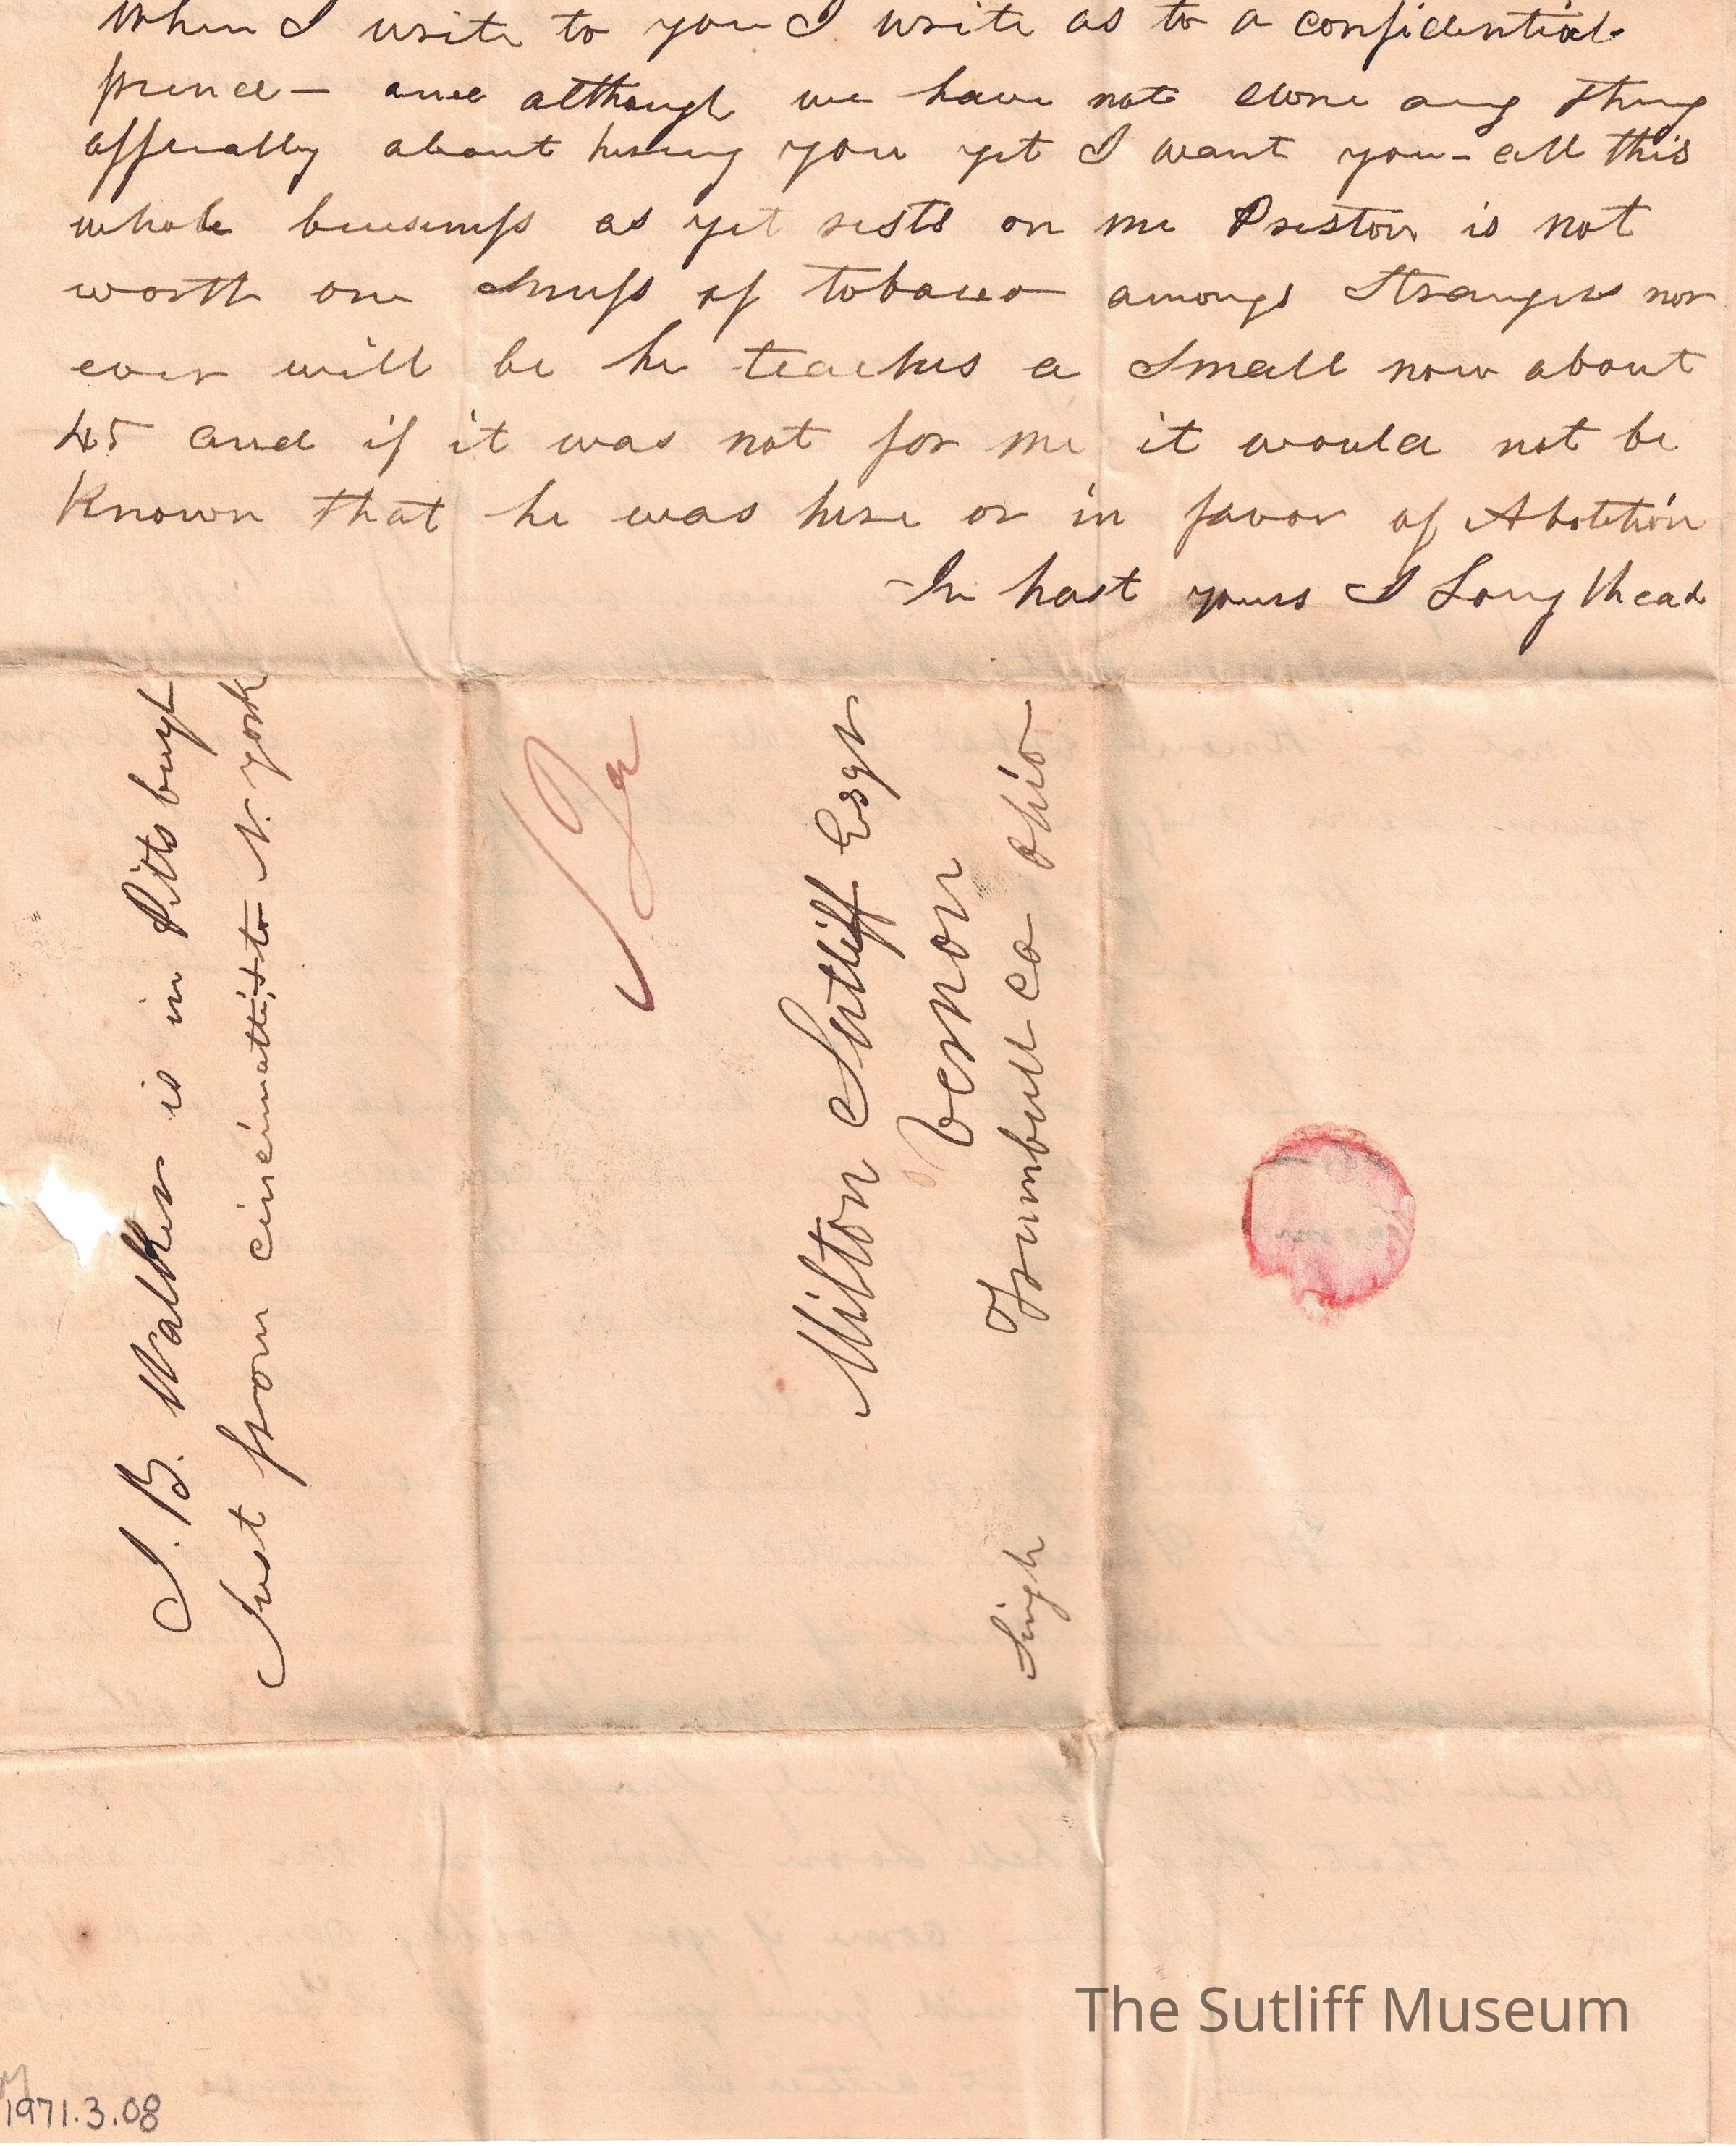 When I write to you I write as to a confidential
friend — and although we have not done any thing
offically about hireing you yet I want you - all this
whole buisiness as yet rests on me Preston is not
worth one snuff of tobacco amongs strangers nor
ever will be he teaches a small now about
45 and if it was not for me it would not be
Known that he was here or in favor of Abolition
In hast yours I Longhead
J. B. Walker is in Pitts burgh
Just from cincinnatti, to N. york
Milton Sutliff Esqr
Vernon
Trumbull co Ohio
Singh
The Sutliff Museum
1971.3.08